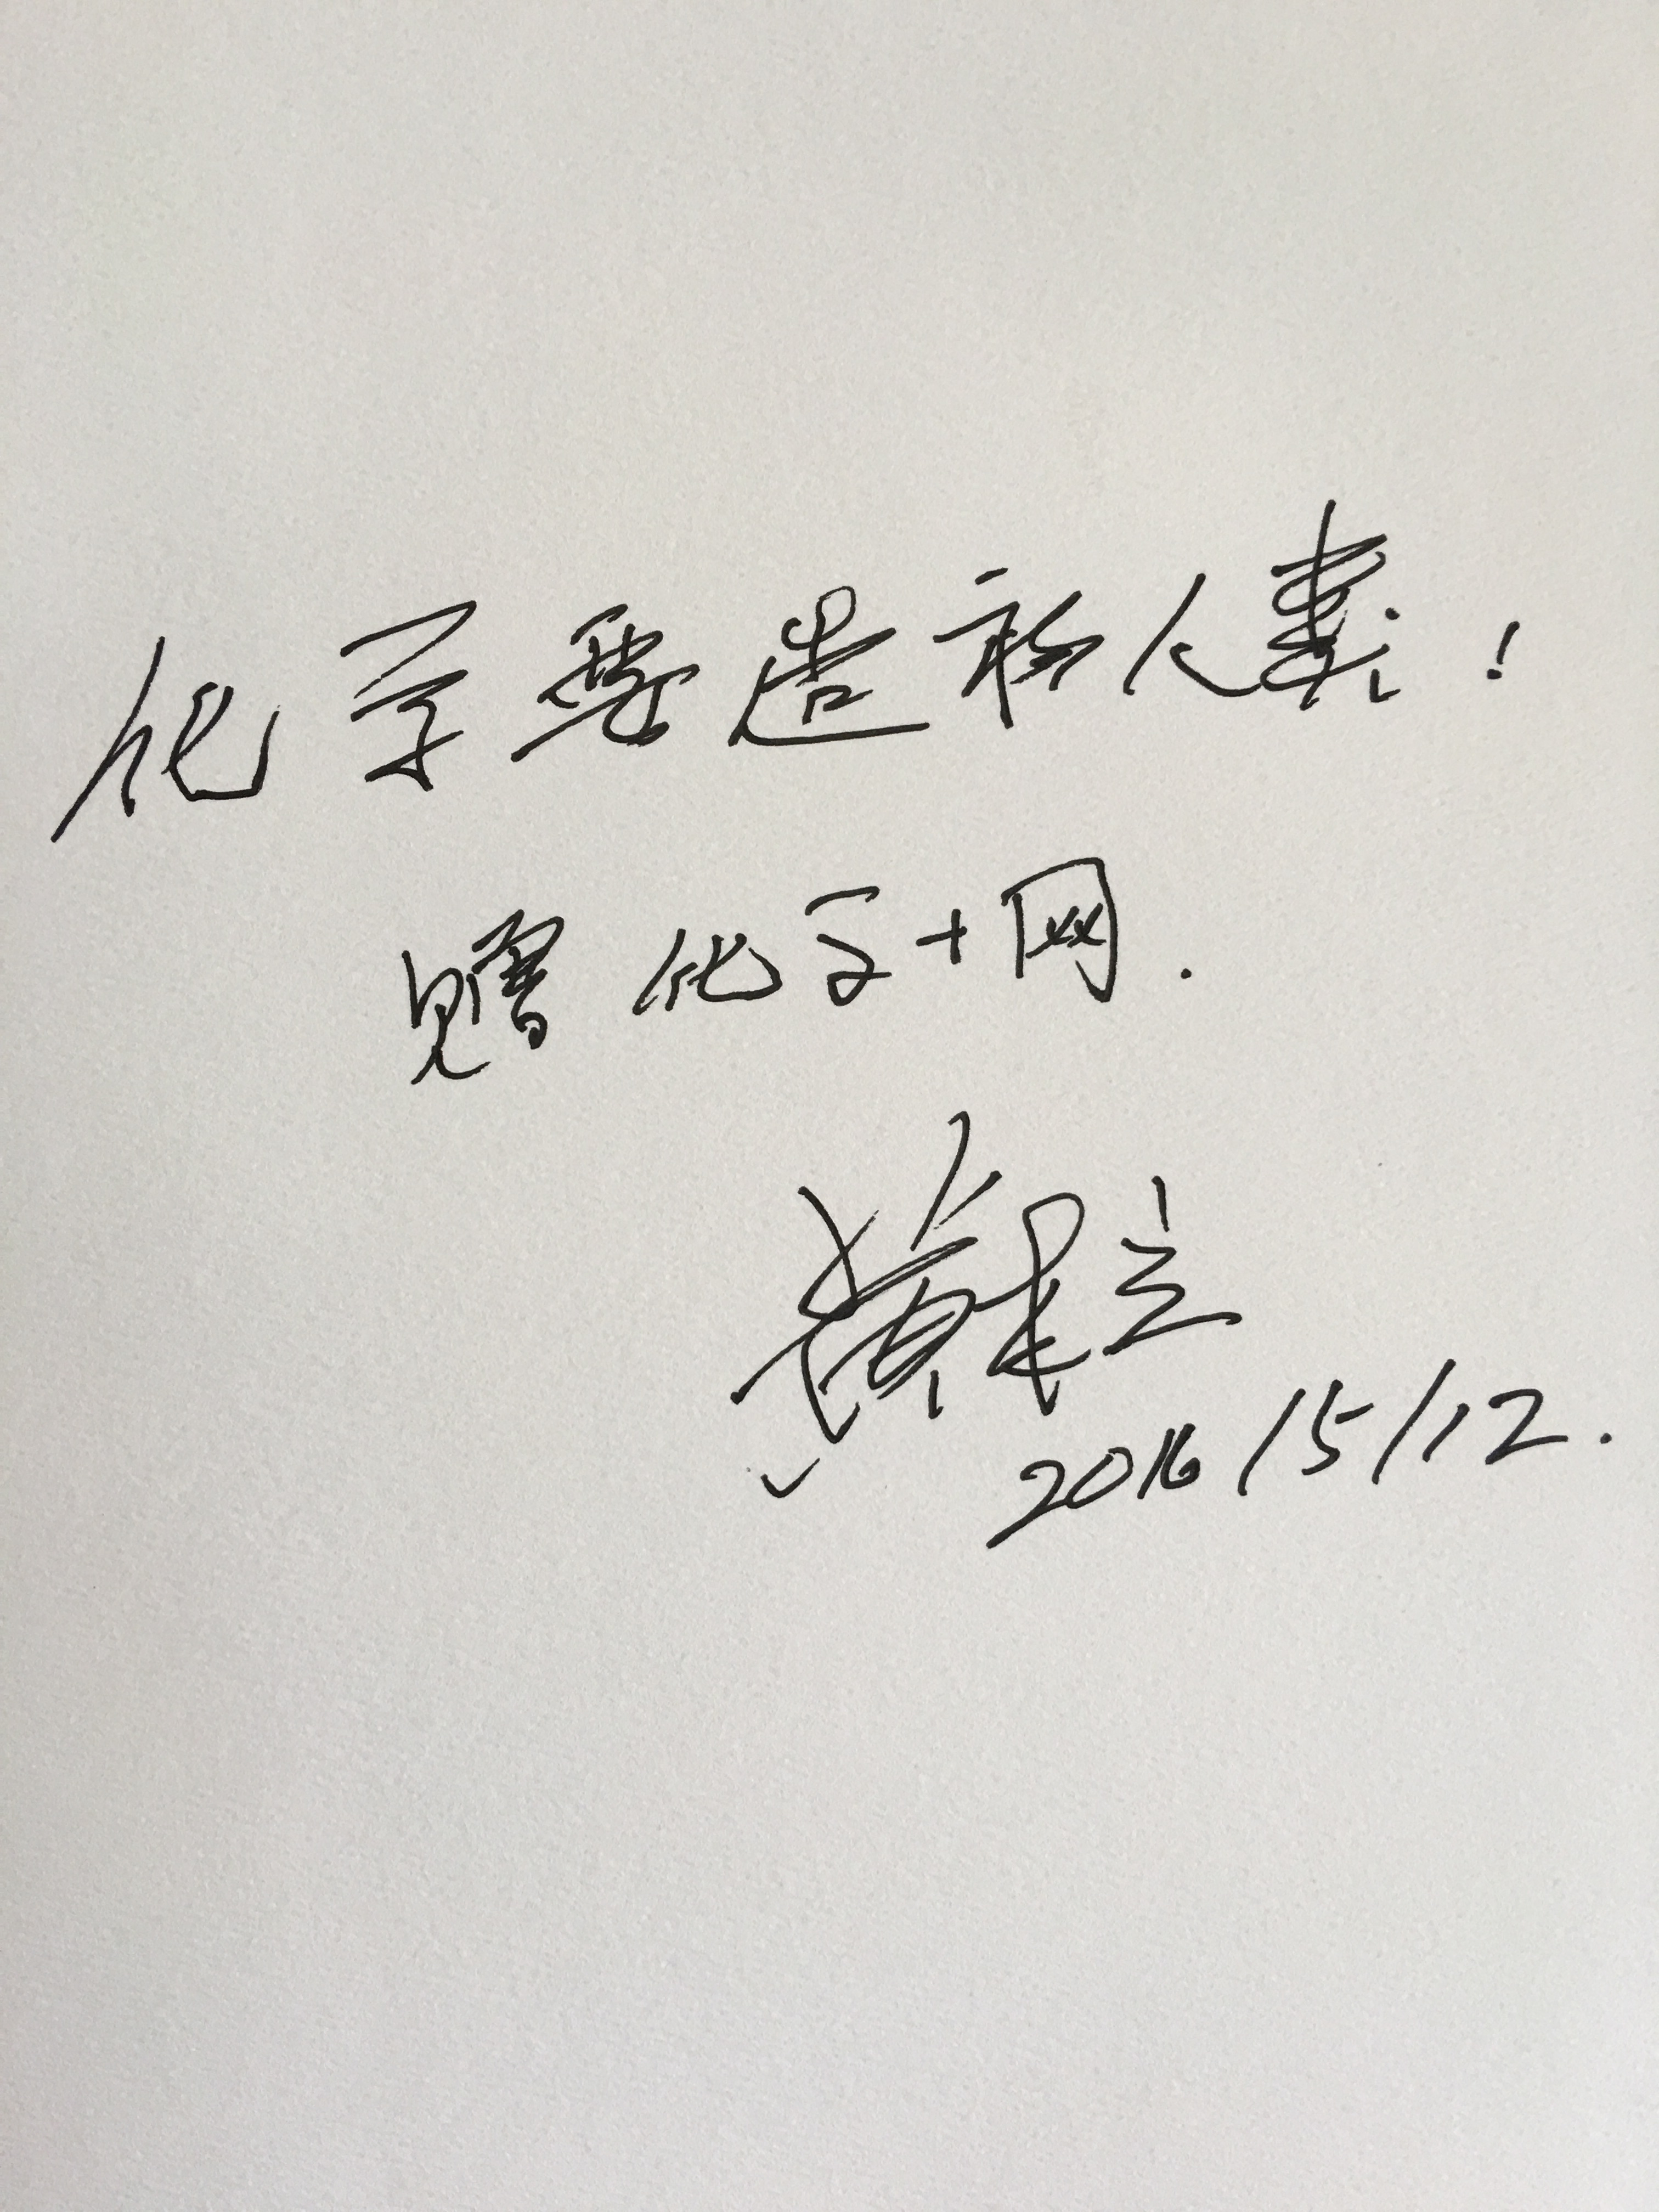 化学要造福人类！
赠 化学+网.
2016/5/12.